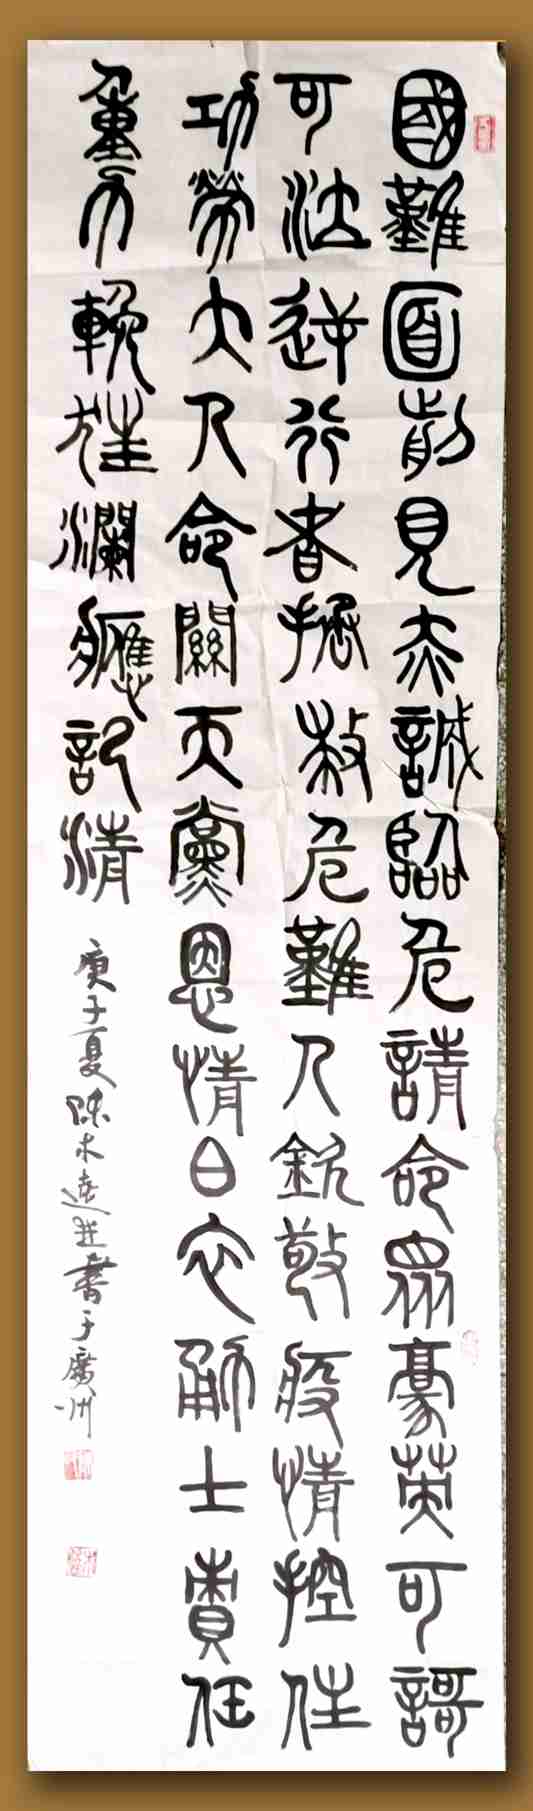 國難面前見赤誠臨危請命眾豪英可謌
可泣逆行者拯救危難人欽敬疫情控住
功勞大人命關天黨恩情白衣勇士責任
重力輓狂瀾應記清
庚子夏陳木並書于廣州